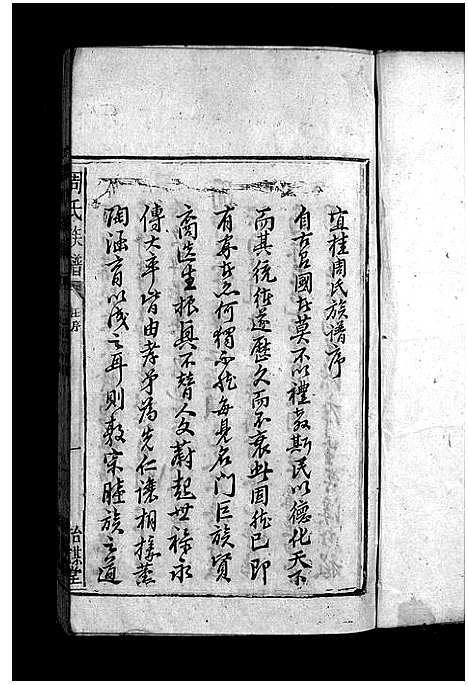 宜桂周氏族譜序
自古君國者莫不以禮教斯民以德化天下
而其統能遂歷久而不衰此固然已即
有家者亦何獨不然每見名門巨族賢
裔迭生振興不替人文蔚起世祿永
傳大率皆由孝弟為先仁讓相接薰
陶涵育以成之耳則敦宗睦族之道
周氏族譜
序
一
怡謀堂